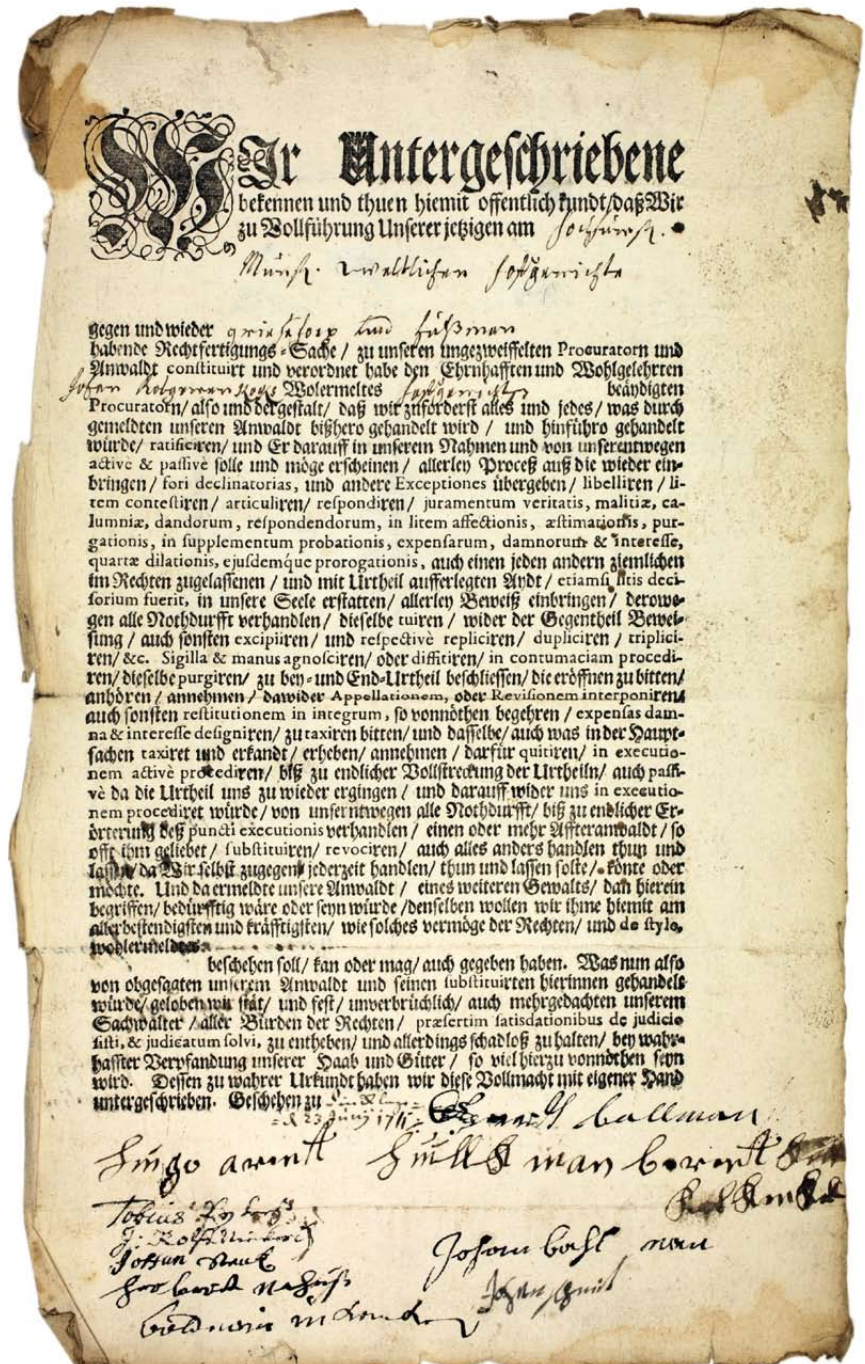 WIr Untergeschriebene
bekennen und thuen hiemit offentlich kundt/daß Wir
zu Vollführung Unserer jetzigen am
Münst. weltlichen Hoffgerichte
gegen und wieder
habende Rechtfertigungs-Sache / zu unseren ungezweiffelten Procuratorn und
Anwaldt constituirt und verordnet habe den Ehrnhafften und Wohlgelehrten
Wolermeltes beäydigten
Procuratorn/ also und dergestalt/ daß wir zuförderst alles und jedes/ was durch
gemeldten unseren Anwaldt bißhero gehandelt wird / und hinführo gehandelt
würde/ ratificiren/ und Er darauff in unserem Nahmen und von unserentwegen
activè & passivè solle und möge erscheinen / allerley Proceß auß die wieder ein-
bringen / fori declinatorias, und andere Exceptiones übergeben / libelliren / li-
tem contestiren / articuliren/ respondiren / juramentum veritatis, malitiæ, ca-
lumniæ, dandorum, respondendorum, in litem affectionis, æstimationis, pur-
gationis, in supplementum probationis, expensarum, damnorum & interesse,
quartæ dilationis, ejusdemque prorogationis, auch einen jeden andern ziemlichen
im Rechten zugelassenen / und mit Urtheil aufferlegten Aydt / etiamsi litis deci-
sorium fuerit, in unsere Seele erstatten / allerley Beweiß einbringen / derowe-
gen alle Nothdurfft verhandlen / dieselbe tuiren / wider der Gegentheil Bewei-
sung / auch sonsten excipiiren / und respectivè repliciren / dupliciren / triplici-
ren/ &c. Sigilla & manus agnosciren/ oder diffitiren/ in contumaciam procedi-
ren/ dieselbe purgiren/ zu bey- und End-Urtheil beschliessen/ die eröffnen zu bitten/
anhören / annehmen / dawider Appellationem, oder Revisionem interponiren/
auch sonsten restitutionem in integrum, so vonnöthen begehren / expensas dam-
na & interesse designiren/ zu taxiren bitten/ und dasselbe/ auch was in der Haupt-
sachen taxiret und erkandt/ erheben/ annehmen / darfür quitiren/ in executio-
nem activè procediren/ biß zu endlicher Vollstreckung der Urtheiln/ auch passi-
vè da die Urtheil uns zu wieder ergingen / und darauff wider uns in executio-
nem procediret würde/ von unserntwegen alle Nothdurfft/ biß zu endlicher Er-
örterung deß puncti executionis verhandlen / einen oder mehr Affteranwaldt / so
offt ihm geliebet / substituiren/ revociren / auch alles anders handlen thun und
lassen/ da Wir selbst zugegen/ jederzeit handlen/ thun und lassen solte/ könte oder
möchte. Und da ermeldte unsere Anwaldt / eines weiteren Gewalts/ dan hierein
begriffen/ bedürfftig wäre oder seyn würde /denselben wollen wir ihme hiemit am
allerbestendigsten und kräfftigsten/ wie solches vermöge der Rechten/ und de stylo,
wohlermeldtes
beschehen soll/ kan oder mag/ auch gegeben haben. Was nun also
von obgesagten unserem Anwaldt und seinen substituirten hierinnen gehandelt
würde/ geloben wir stät/ und fest/ unverbrüchlich/ auch mehrgedachten unserem
Sachwalter / aller Bürden der Rechten / præsertim satisdationibus de judicio
sisti, & judicatum solvi, zu entheben/ und allerdings schadloß zu halten/ bey wahr-
haffter Verpfandung unserer Haab und Güter / so viel hierzu vonnöthen seyn
wird. Dessen zu wahrer Urkundt haben wir diese Vollmacht mit eigener Hand
untergeschrieben. Geschehen zu
d 23 Juny
Tobius
Johan